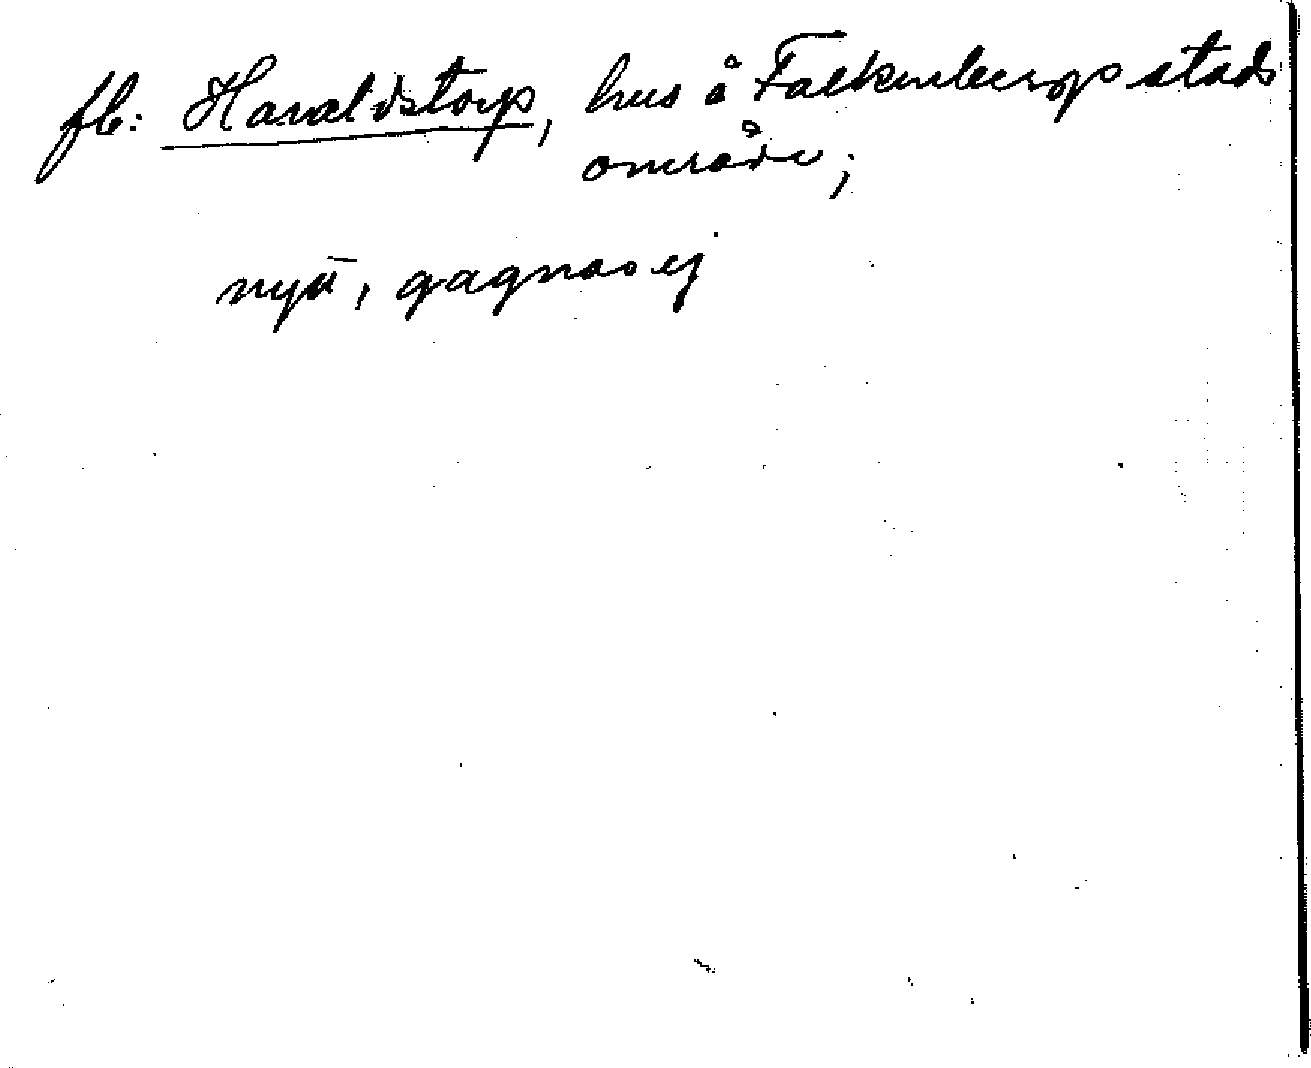 fb: Haraldstorp, hus å Falkenbergs stads
område;
nytt, gagnas ej